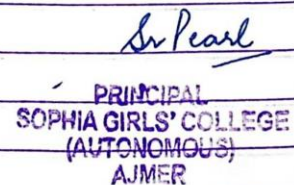 Sr Pearl
PRINCIPAL
SOPHIA GIRLS' COLLEGE
(AUTONOMOUS)
AJMER